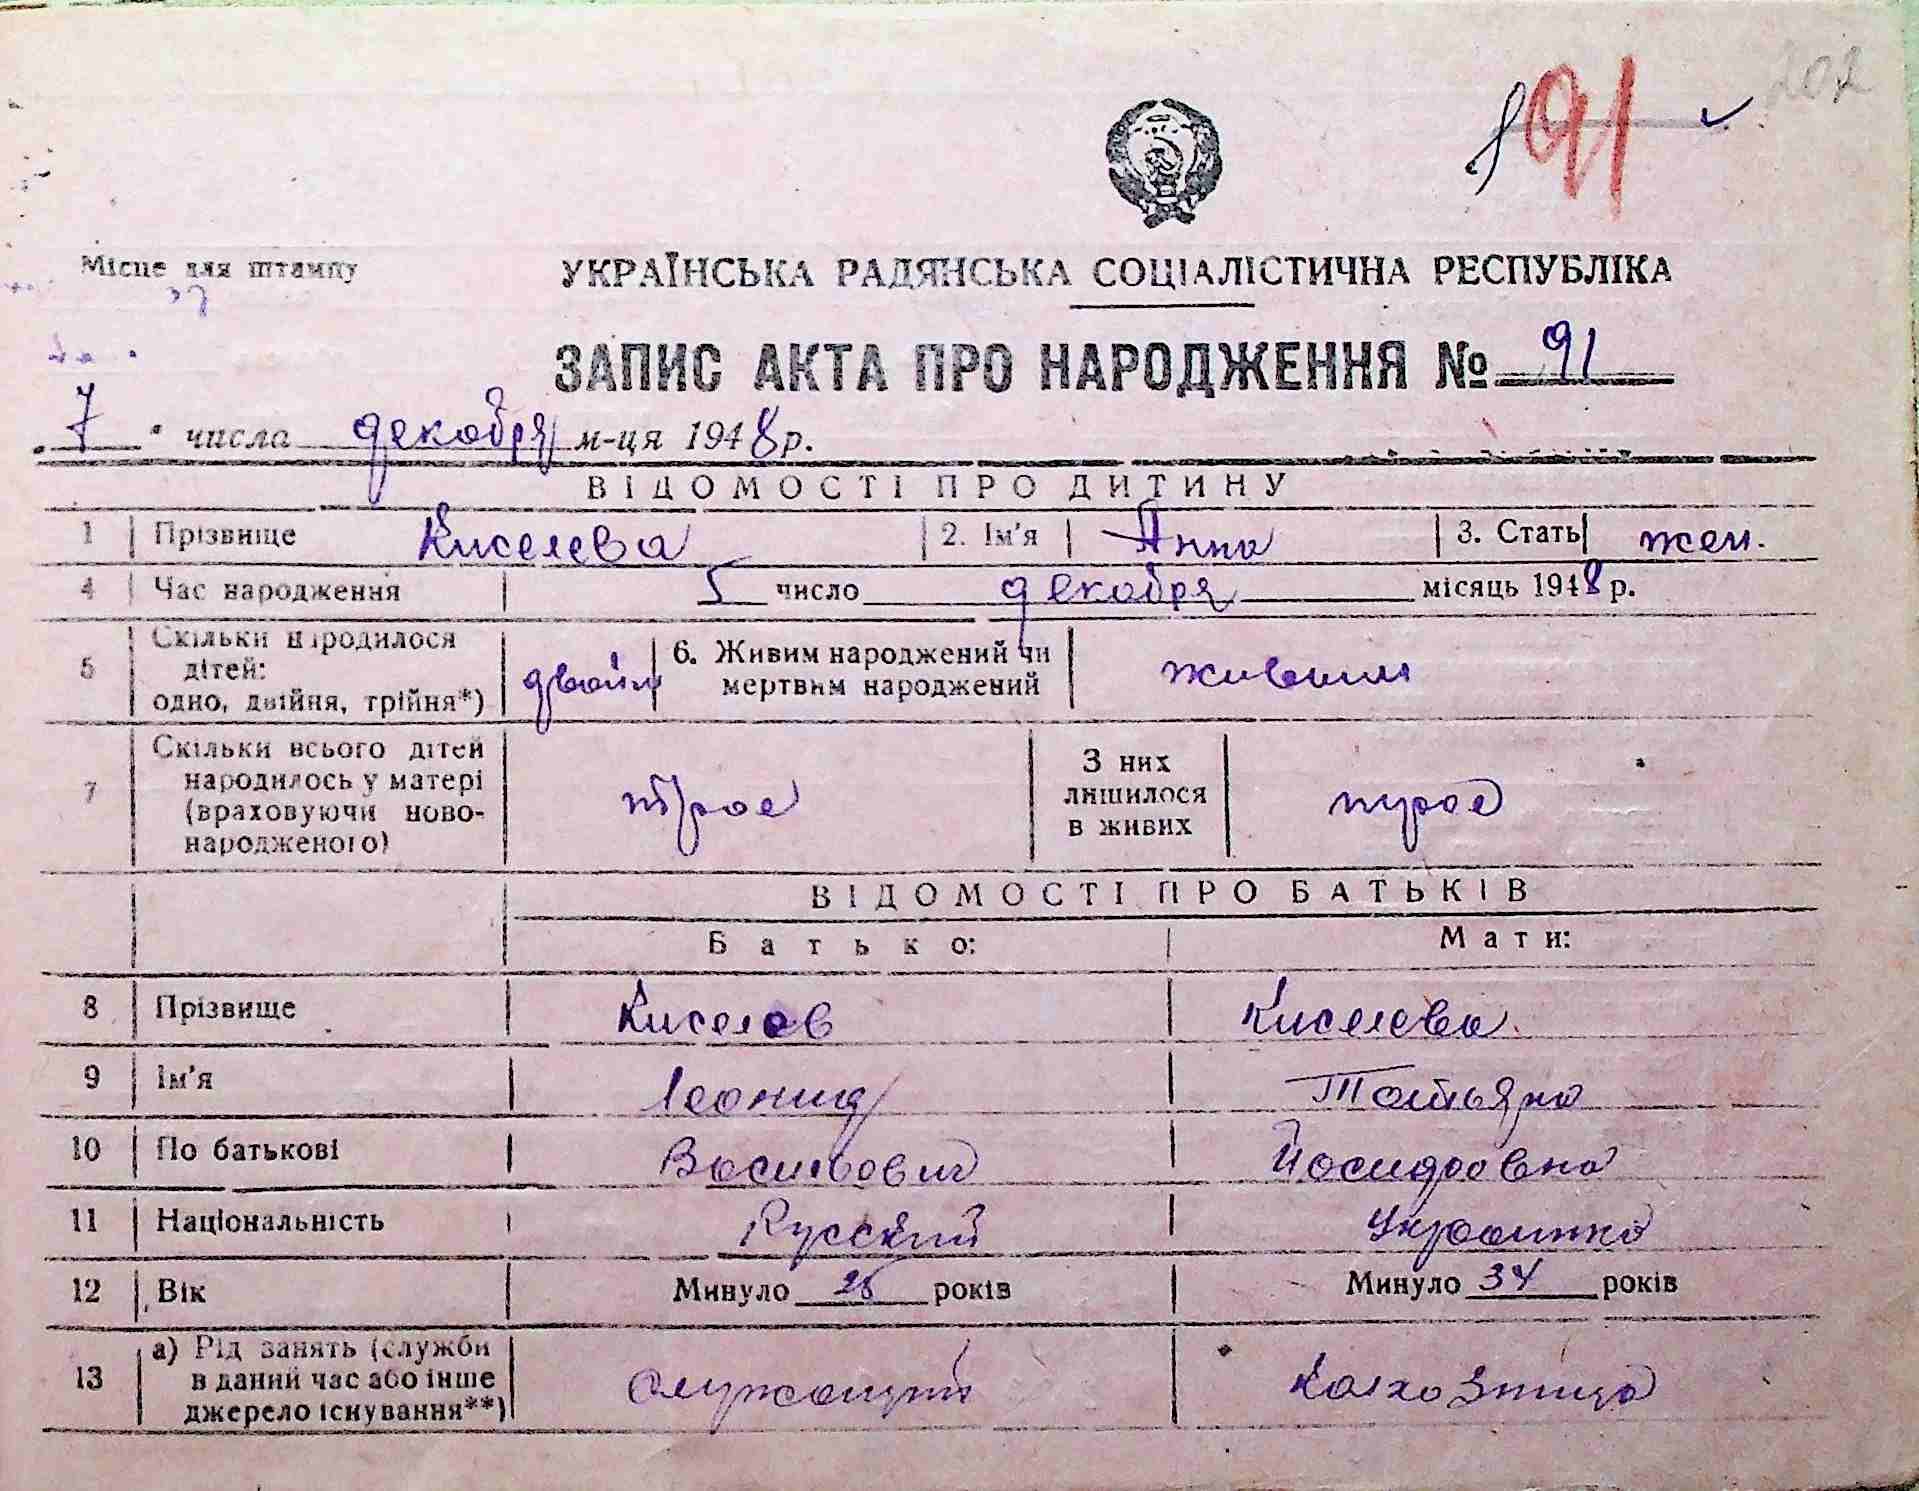 91 202
Місце для штампу
УКРАЇНСЬКА РАДЯНСЬКА СОЦІАЛІСТИЧНА РЕСПУБЛІКА
ЗАПИС АКТА ПРО НАРОДЖЕННЯ № 91
7 числа декабря м-ця 1948 р.
ВІДОМОСТІ ПРО ДИТИНУ
1 Прізвище Киселева 2. Ім'я Анна 3. Стать жен.
4 Час народження 5 число декабря місяць 1948 р.
5 Скільки народилося
дітей:
одно, двійня, трійня*) двойн 6. Живим народжений чи
мертвим народжений живыми
7 Скільки всього дітей
народилось у матері
(враховуючи ново-
народженого) трое З них
лишилося
в живих трое
ВІДОМОСТІ ПРО БАТЬКІВ
Батько: Мати:
8 Прізвище Киселев Киселева
9 Ім'я Леонид Татьяна
10 По батькові Васильович Йосифовна
11 Національність Русский Украинка
12 Вік Минуло років Минуло 34 років
13 а) Рід занять (служби
в даний час або інше
джерело існування**) Служащий Колхозница